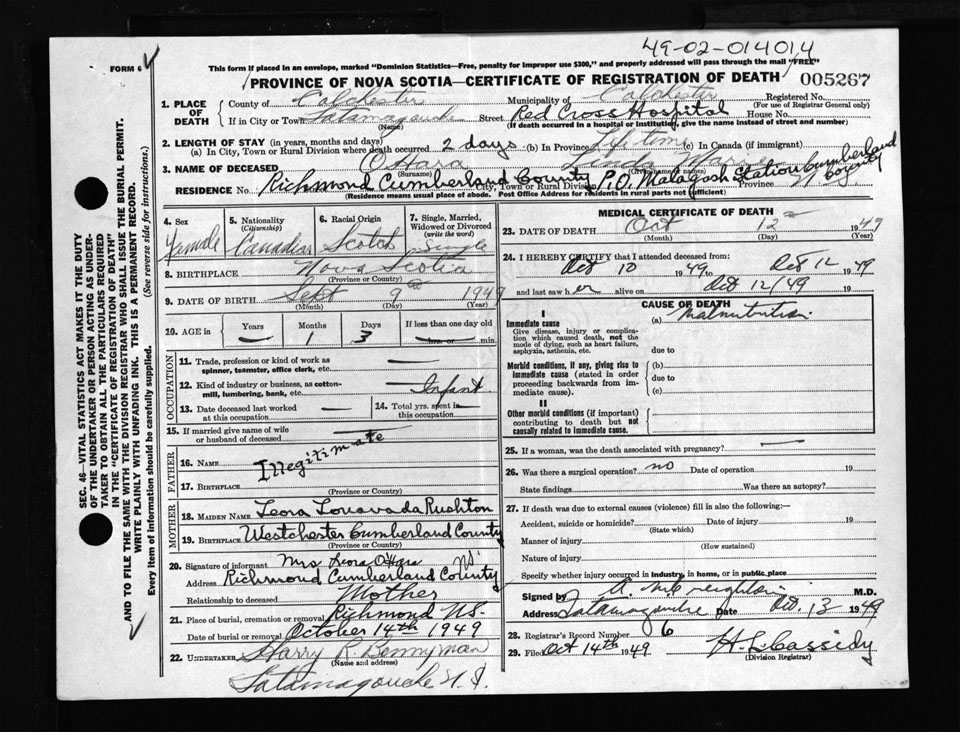 49-02-014014
FORM 6
This form if placed in an envelope, marked "Dominion Statistics—Free, penalty for improper use $300," and properly addressed will pass through the mail "FREE"
PROVINCE OF NOVA SCOTIA—CERTIFICATE OF REGISTRATION OF DEATH
005267
SEC. 46—VITAL STATISTICS ACT MAKES IT THE DUTY
OF THE UNDERTAKER OR PERSON ACTING AS UNDER-
TAKER TO OBTAIN ALL THE PARTICULARS REQUIRED
IN THE "CERTIFICATE OF REGISTRATION OF DEATH"
AND TO FILE THE SAME WITH THE DIVISION REGISTRAR WHO SHALL ISSUE THE BURIAL PERMIT.
WRITE PLAINLY WITH UNFADING INK. THIS IS A PERMANENT RECORD.
Every item of information should be carefully supplied. (See reverse side for instructions.)
1. PLACE OF DEATH
County of Colchester Municipality of Colchester Registered No.
(For use of Registrar General only)
If in City or Town Tatamagouche Street Red Cross Hospital House No.
(Name) (If death occurred in a hospital or institution, give the name instead of street and number)
2. LENGTH OF STAY (in years, months and days)
(a) In City, Town or Rural Division where death occurred 2 days (b) In Province Life time (c) In Canada (if immigrant)
3. NAME OF DECEASED O'Hara Linda
(Surname) (Given or names)
RESIDENCE No. Richmond Cumberland County City, Town or Rural Division P.O. Malagash Station Cumberland County Province N.S.
(Residence means usual place of abode. Post Office Address for residents in rural parts not sufficient)
4. Sex Female
5. Nationality (Citizenship) Canadian
6. Racial Origin Scotch
7. Single, Married, Widowed or Divorced (write the word) Single
8. BIRTHPLACE Nova Scotia
(Province or Country)
9. DATE OF BIRTH Sept 9th 1949
(Month) (Day) (Year)
10. AGE in Years — Months 1 Days 3 If less than one day old — hrs. or — min.
OCCUPATION
11. Trade, profession or kind of work as spinner, teamster, office clerk, etc. —
12. Kind of industry or business, as cotton-mill, lumbering, bank, etc. Infant
13. Date deceased last worked at this occupation —
14. Total yrs. spent in this occupation —
15. If married give name of wife or husband of deceased —
FATHER
16. Name Illegitimate
17. Birthplace
(Province or Country)
MOTHER
18. MAIDEN NAME Leora Rushton
19. BIRTHPLACE Westchester Cumberland County
(Province or Country)
20. Signature of informant Mrs Leora O'Hara
Address Richmond Cumberland County NS
Relationship to deceased Mother
21. Place of burial, cremation or removal Richmond N.S.
Date of burial or removal October 14th 1949
22. UNDERTAKER Harry R. Bonnyman
(Name and address)
Tatamagouche N.S.
MEDICAL CERTIFICATE OF DEATH
23. DATE OF DEATH Oct 12 1949
(Month) (Day) (Year)
24. I HEREBY CERTIFY that I attended deceased from:
Oct 10 1949 to Oct 12 1949
and last saw her alive on Oct 12/49 19
CAUSE OF DEATH
I
Immediate cause
Give disease, injury or complication which caused death, not the mode of dying, such as heart failure, asphyxia, asthenia, etc.
(a) Malnutrition
due to
Morbid conditions, if any, giving rise to immediate cause (stated in order proceeding backwards from immediate cause).
(b)
due to
(c)
II
Other morbid conditions (if important) contributing to death but not causally related to immediate cause.
25. If a woman, was the death associated with pregnancy? —
26. Was there a surgical operation? no Date of operation 19
State findings Was there an autopsy?
27. If death was due to external causes (violence) fill in also the following:
Accident, suicide or homicide? Date of injury 19
(State which)
Manner of injury
(How sustained)
Nature of injury
Specify whether injury occurred in industry, in home, or in public place
Signed by M.D.
Address Tatamagouche Date Oct. 13 1949
28. Registrar's Record Number 6
29. Filed Oct 14th 1949 H. L. Cassidy
(Division Registrar)